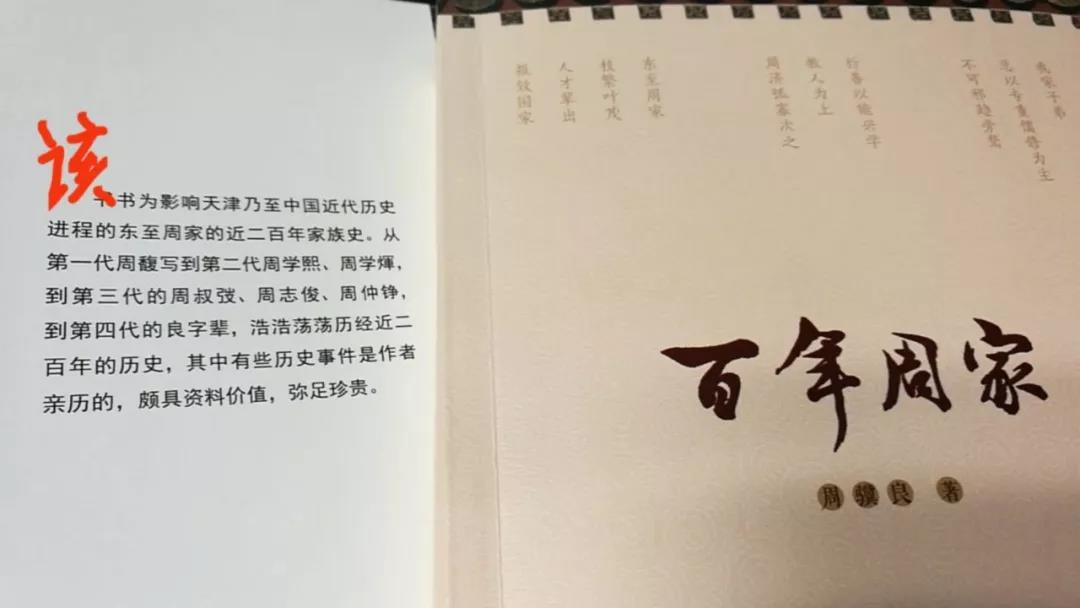 该
书为影响天津乃至中国近代历史
进程的东至周家的近二百年家族史。从
第一代周馥写到第二代周学熙、周学煇，
到第三代的周叔弢、周志俊、周仲铮，
到第四代的良字辈，浩浩荡荡历经近二
百年的历史，其中有些历史事件是作者
亲历的，颇具资料价值，弥足珍贵。
我家子弟
总以专重儒修为主
不可邪趋旁骛
行善以能兴学
教人为上
周济孤寡次之
东至周家
枝繁叶茂
人才辈出
报效国家
百年周家
周骥良 著